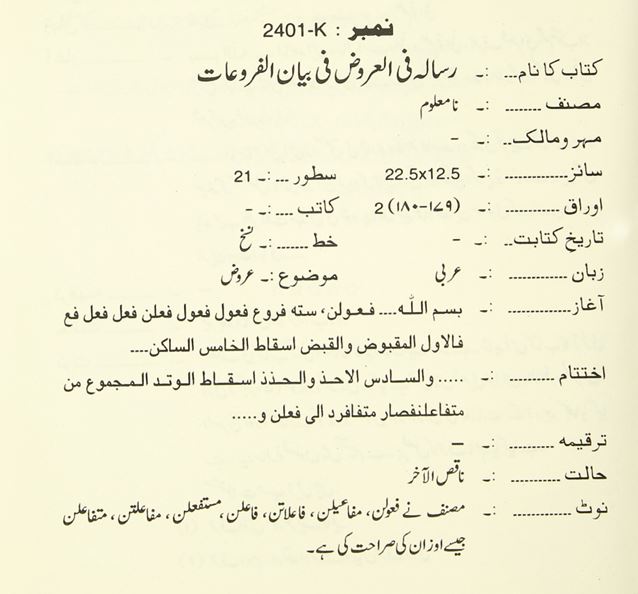 نمبر : 2401-K
کتاب کا نام... :۔ رسالہ فی العروض فی بیان الفروعات
مصنف ........ :۔ نامعلوم
مہر و مالک.. :۔ -
سائز............. :۔ 22.5x12.5 سطور ...:۔ 21
اوراق ............ :۔ 2 (۱۷۹-۱۸۰) کاتب ....:۔ -
تاریخ کتابت.. :۔ - خط .......:۔ نسخ
زبان ............. :۔ عربی موضوع :۔ عروض
آغاز.............. :۔ بسم اللہ.... فعولن، ستہ فروع فعول فعول فعلن فعل فعل فع
فالاول المقبوض والقبض اسقاط الخامس الساکن....
اختتام .......... :۔ ..... والسادس الاحذ والحذذ اسقاط الوتد المجموع من
متفاعلنفصار متفافرد الی فعلن و.....
ترقیمہ .......... :۔ –
حالت ........... :۔ ناقص الآخر
نوٹ ............. :۔ مصنف نے فعولن، مفاعیلن، فاعلاتن، فاعلن، مستفعلن، مفاعلتن، متفاعلن
جیسے اوزان کی صراحت کی ہے۔